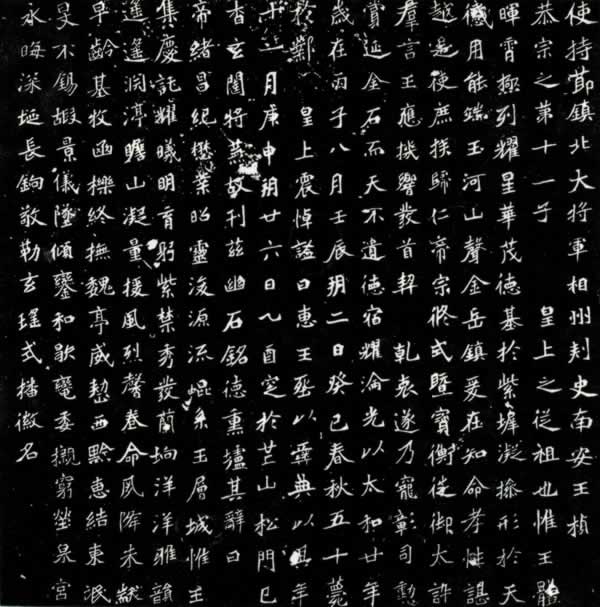 使持節鎮北大將軍相州刺史南安王楨
恭宗之第十一子 皇上之從祖也惟王體
暉霄極列耀星華茂德基於紫墀凝操形於天
儀用能端玉河山聲金岳鎮爰在知命孝性諶
越是使庶族歸仁帝宗攸式暨寶衡徙御大訊
羣言王應機響發首契 乾衷遂乃寵彰司勳
賞延金石而天不遺德宿耀淪光以太和廿年
歲在丙子八月壬辰朔二日癸巳春秋五十薨
於鄴 皇上震悼諡曰惠王葬以彝典以其年
十一月庚申朔廿六日乙酉窆於芒山松門已
杳玄闥將蕪故刊茲幽石銘德熏壚其辭曰
帝緒昌紀懋業昭靈浚源流崐系玉層城惟王
集慶託耀曦明育躬紫禁秀發蘭坰洋洋雅韻
遙遙淵渟瞻山凝量援風烈馨卷命夙降未黻
早齡基牧函櫟終撫魏亭威愬西黔惠結東氓
旻不錫嘏景儀墜傾鑾和歇轡委櫬窮塋泉宮
永晦深埏長鋦敬勒玄瑤式播徽名